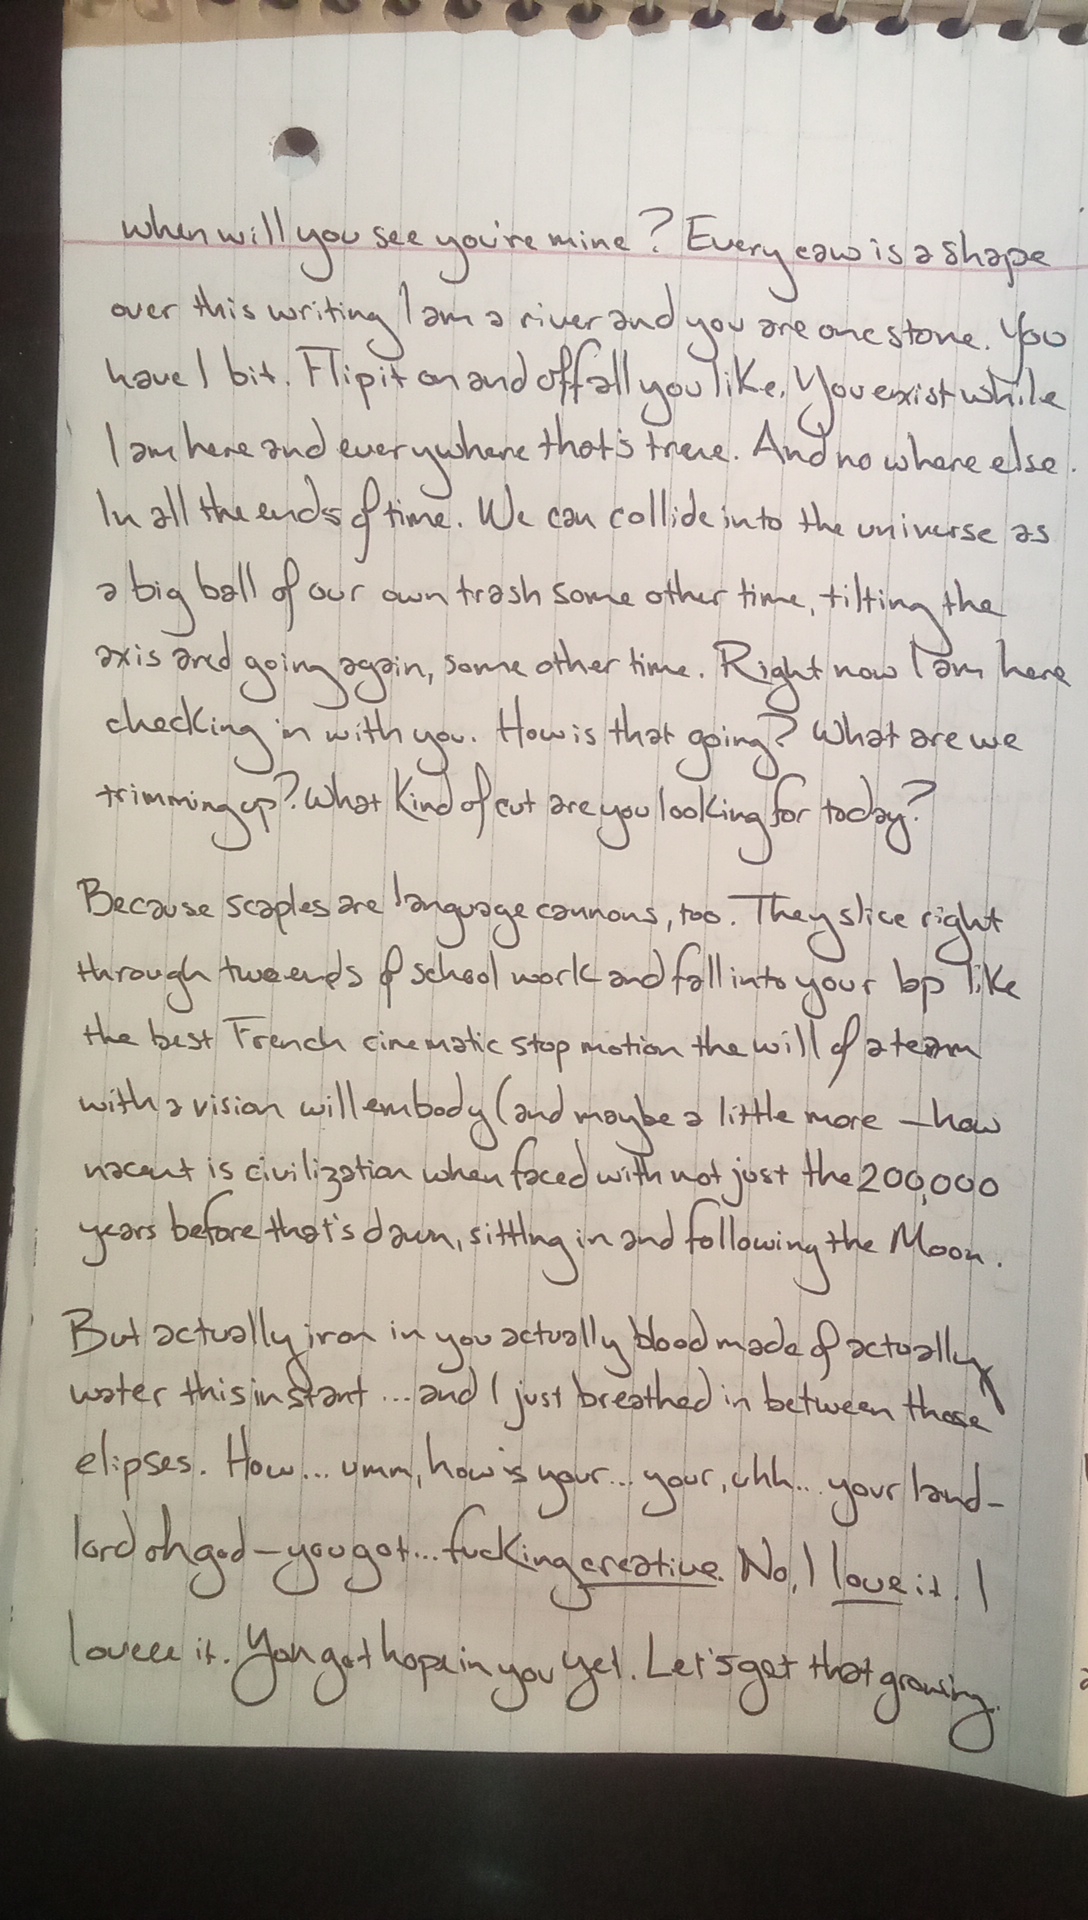 when will you see you're mine? Every caw is a shape
over this writing I am a river and you are one stone. You
have 1 bit. Flip it on and off all you like. You exist while
I am here and everywhere that's true. And no where else.
In all the ends of time. We can collide into the universe as
a big ball of our own trash some other time, tilting the
axis and going again, some other time. Right now I am here
checking in with you. How is that going? What are we
trimming up? What kind of cut are you looking for today?
Because scaples are language cannons, too. They slice right
through two ends of school work and fall into your bp like
the best French cinematic stop motion the will of a team
with a vision will embody (and maybe a little more – how
vacant is civilization when faced with not just the 200,000
years before that's dawn, sitting in and following the Moon.
But actually iron in you actually blood made of actually
water this instant ... and I just breathed in between those
elipses. How... umm, how is your... your, uhh... your land-
lord oh god – you got... fucking creative. No, I love it. I
loveee it. You got hope in you yet. Let's get that growing.